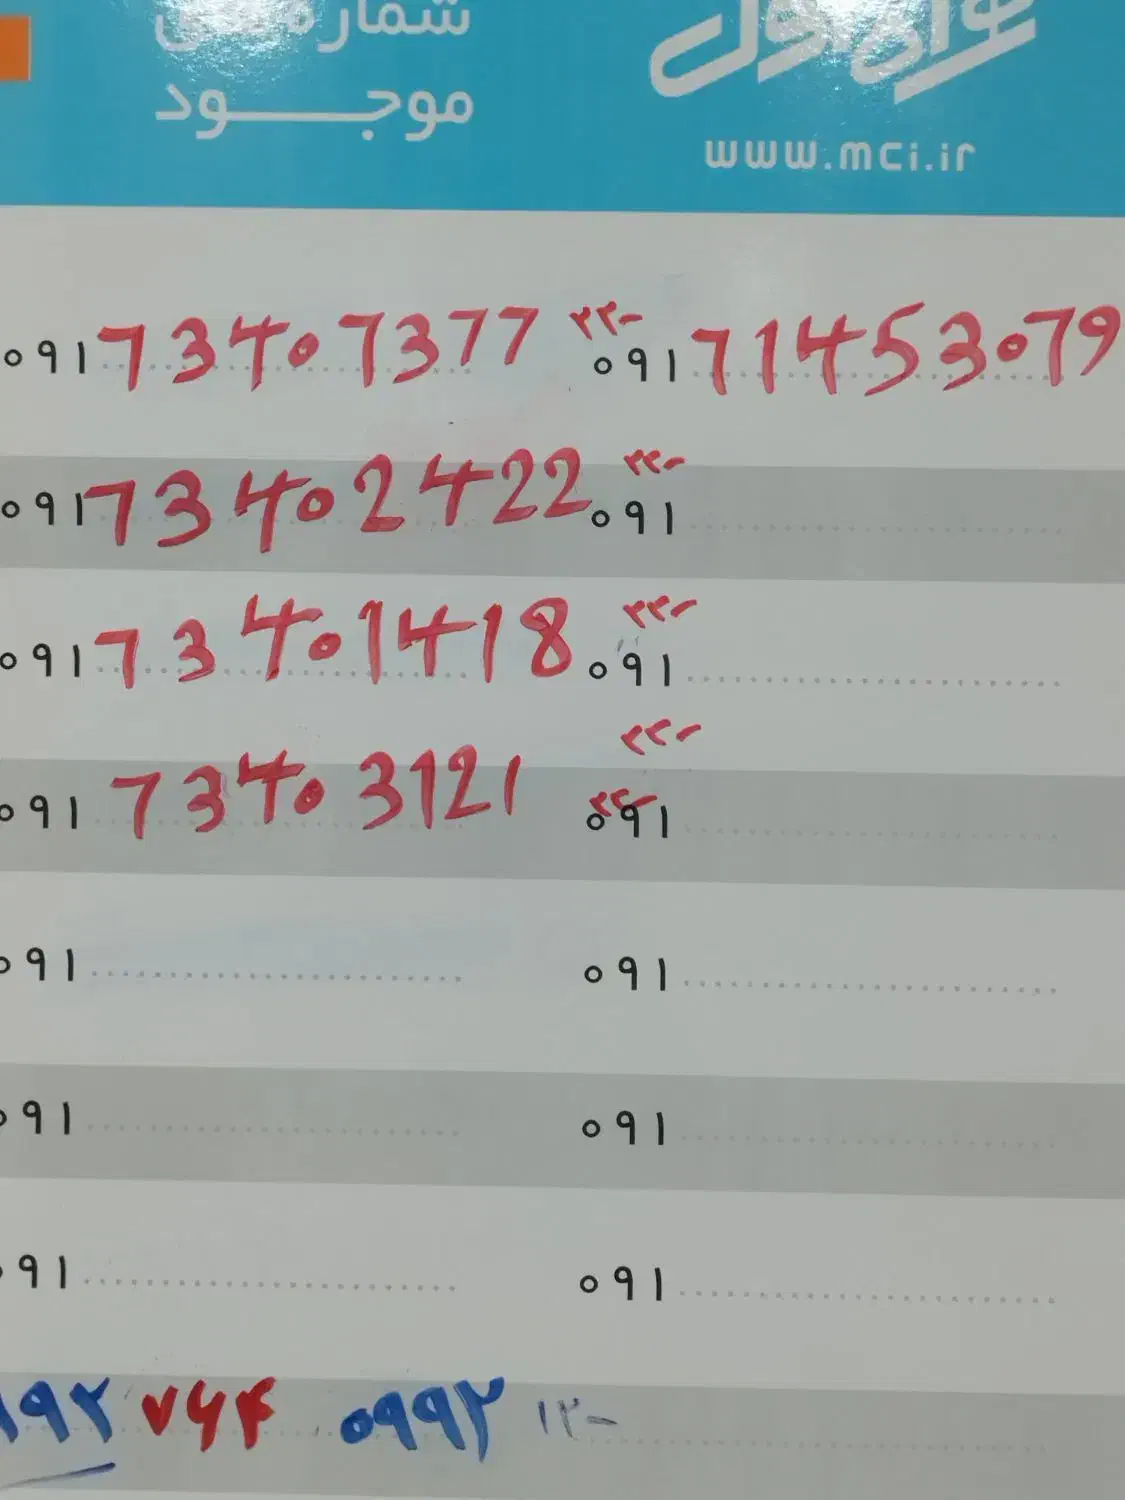 شماره‌های همراه اول
موجود
www.mci.ir
۰۹۱73407377 ۲۲۰ ۰۹۱71453079
۰۹۱73402422 ۲۲۰ ۰۹۱
۰۹۱73401418 ۲۲۰ ۰۹۱
۲۲۰
۰۹۱73403121 ۲۲۰ ۰۹۱
۰۹۱ ۰۹۱
۰۹۱ ۰۹۱
۹۱ ۰۹۱
۹۹۲ ۷۶۴ ۰۹۹۲ ۱۲۰